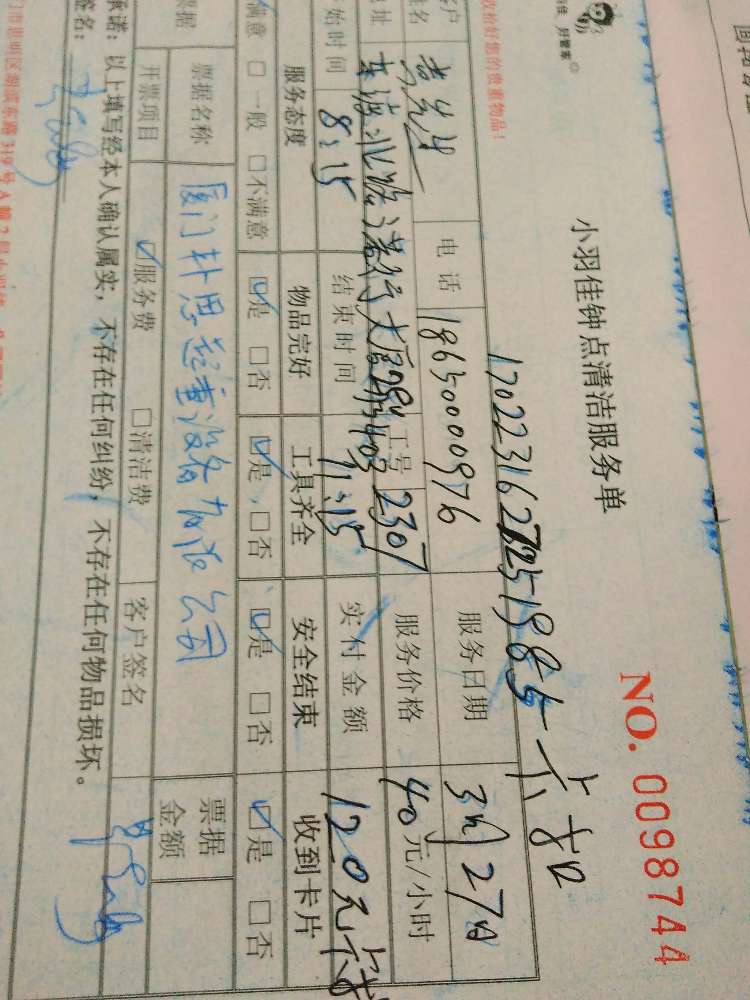 小羽佳钟点清洁服务单
NO. 0098744
收拾好您的贵重物品！
电话 18650000976 服务日期 3月27日
工号 2307 服务价格 40元/小时
始时间 8:15 结束时间 11:15 实付金额 120元
服务态度 物品完好 工具齐全 安全结束 收到卡片
满意 □一般 □不满意 ☑是 □否 ☑是 □否 ☑是 □否 ☑是 □否
票据 票据名称 厦门朴思起重设备有限公司 票据金额
开票项目 ☑服务费 □清洁费 客户签名
承诺：以上填写经本人确认属实，不存在任何纠纷，不存在任何物品损坏。
签名：
门市思明区湖滨东路319号A幢2号